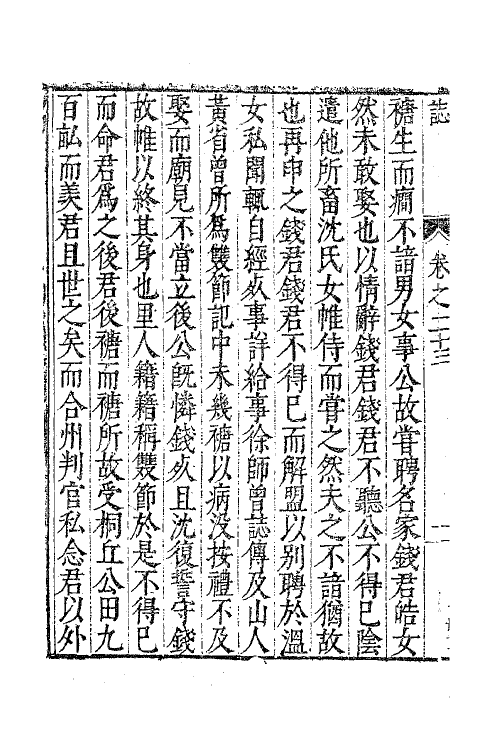 誌
卷之二十三
禟生而癎不諳男女事公故嘗聘名家錢君皓女
然未敢娶也以情辭錢君錢君不聽公不得已陰
遣他所畜沈氏女帷侍而嘗之然夫之不諳猶故
也再申之錢君錢君不得已而解盟以别聘於溫
女私聞輒自經𣦸事詳給事徐師曾誌傳及山人
黃省曾所爲雙節記中未幾禟以病没按禮不及
娶而廟見不當立後公旣憐錢𣦸且沈復誓守錢
故帷以終其身也里人籍籍稱雙節於是不得已
而命君爲之後君後禟而禟所故受桐丘公田九
百畝而羡君且世之矣而合州判官私念君以外